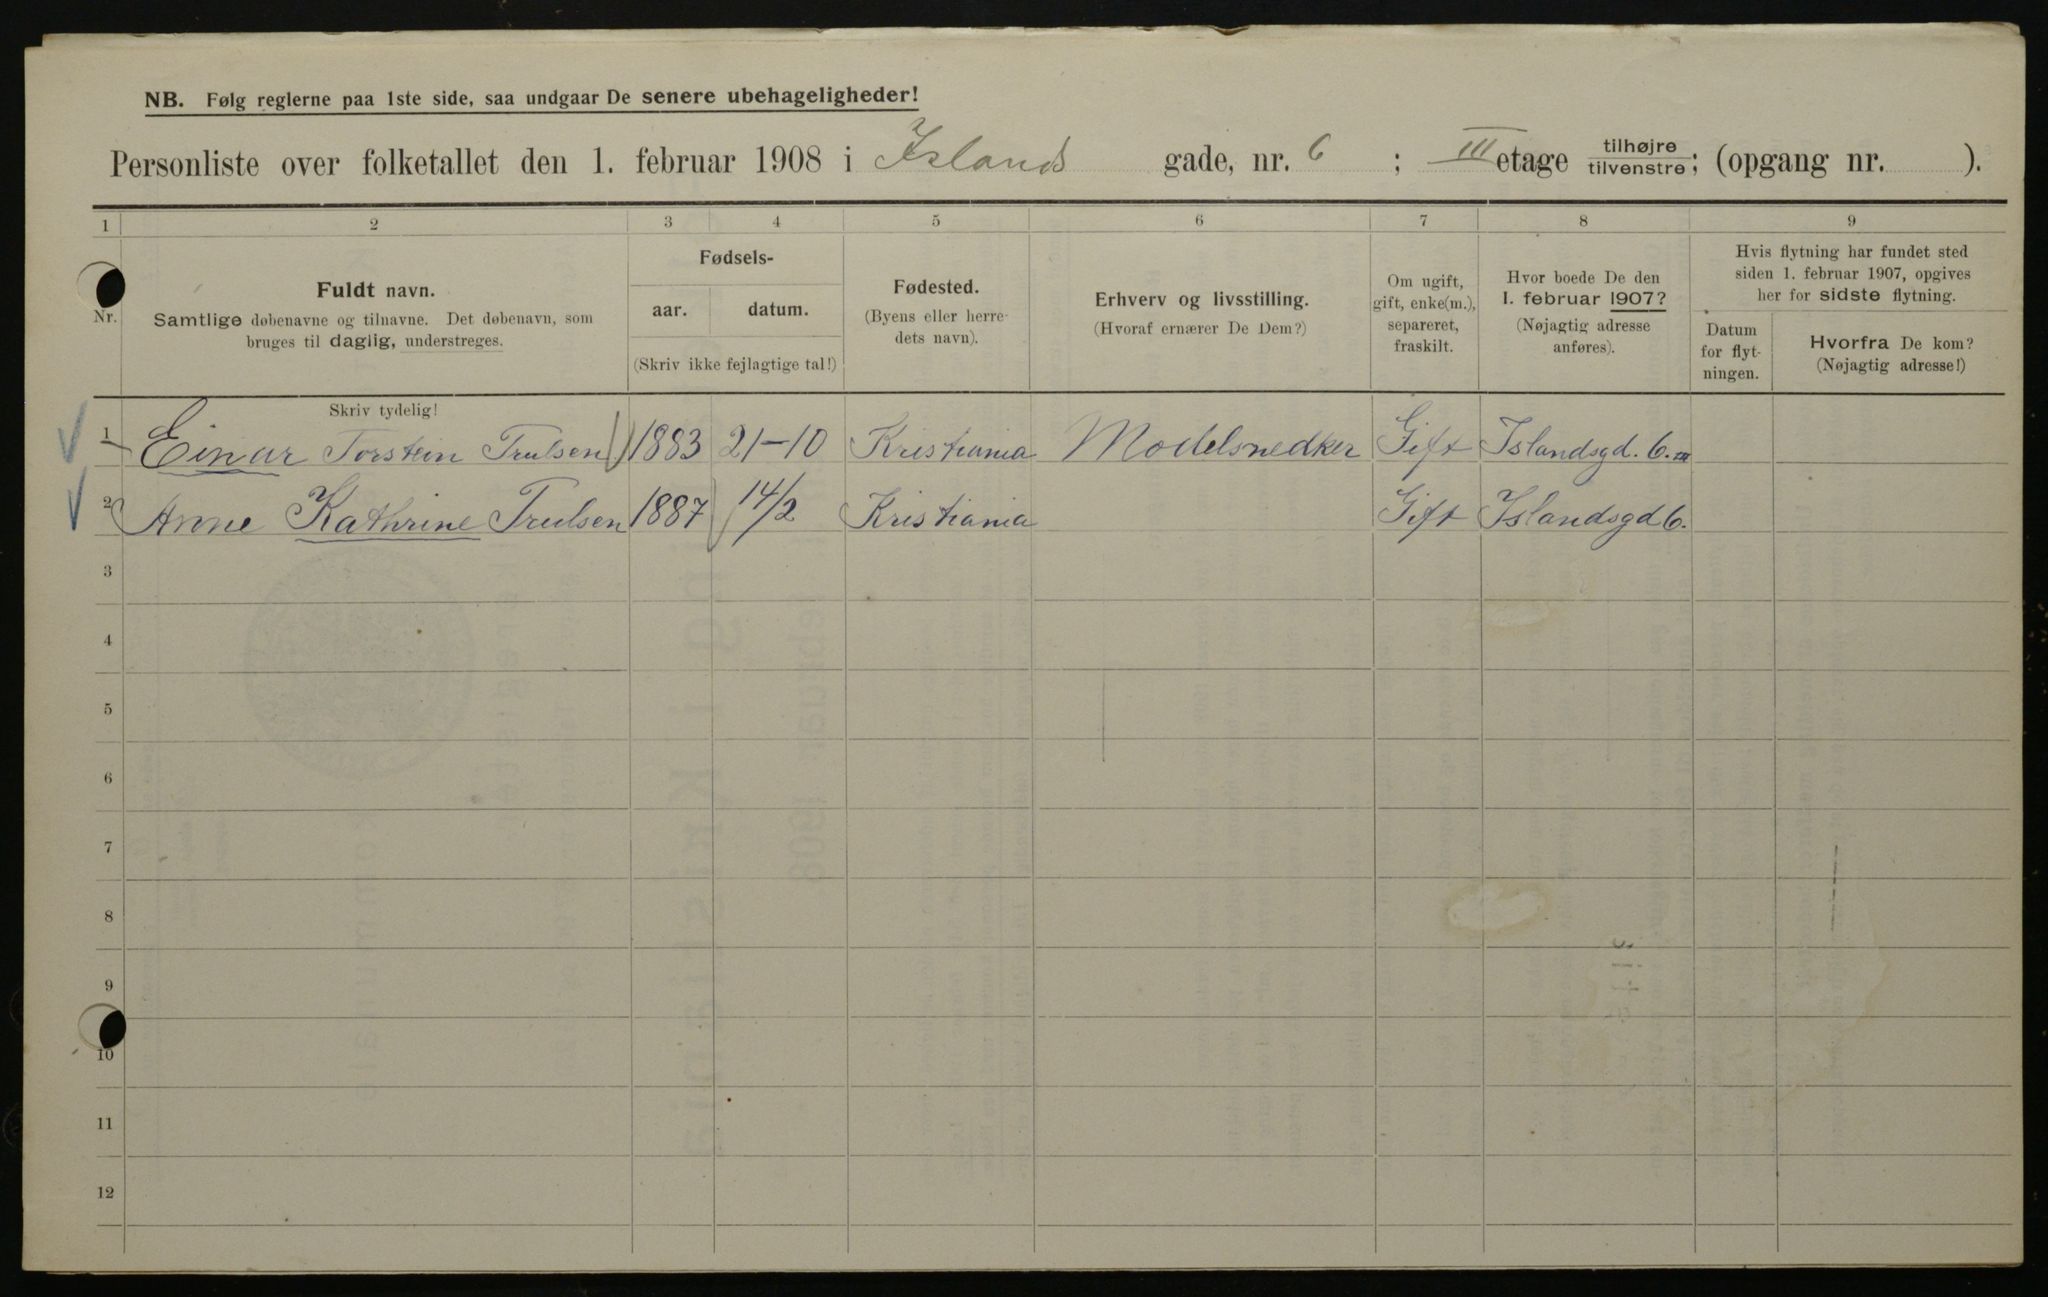 NB. Følg reglerne paa 1ste side, saa undgaar De senere ubehageligheder!
Personliste over folketallet den 1. februar 1908 i Islands gade, nr. 6 ; III etage tilhøjre/tilvenstre; (opgang nr. ).
1 2 3 4 5 6 7 8 9
Nr.
Fuldt navn.
Samtlige døbenavne og tilnavne. Det døbenavn, som
bruges til daglig, understreges.
Skriv tydelig!
Fødsels-
aar. datum.
(Skriv ikke fejlagtige tal!)
Fødested.
(Byens eller herre-
dets navn).
Erhverv og livsstilling.
(Hvoraf ernærer De Dem?)
Om ugift,
gift, enke(m.),
separeret,
fraskilt.
Hvor boede De den
1. februar 1907?
(Nøjagtig adresse
anføres).
Hvis flytning har fundet sted
siden 1. februar 1907, opgives
her for sidste flytning.
Datum
for flyt-
ningen.
Hvorfra De kom?
(Nøjagtig adresse!)
1 Einar Torstein Trulsen 1883 21-10 Kristiania Modelsnedker Gift Islandsgd. 6. III
2 Anne Kathrine Trulsen 1887 14/2 Kristiania Gift Islandsgd 6.
3
4
5
6
7
8
9
10
11
12